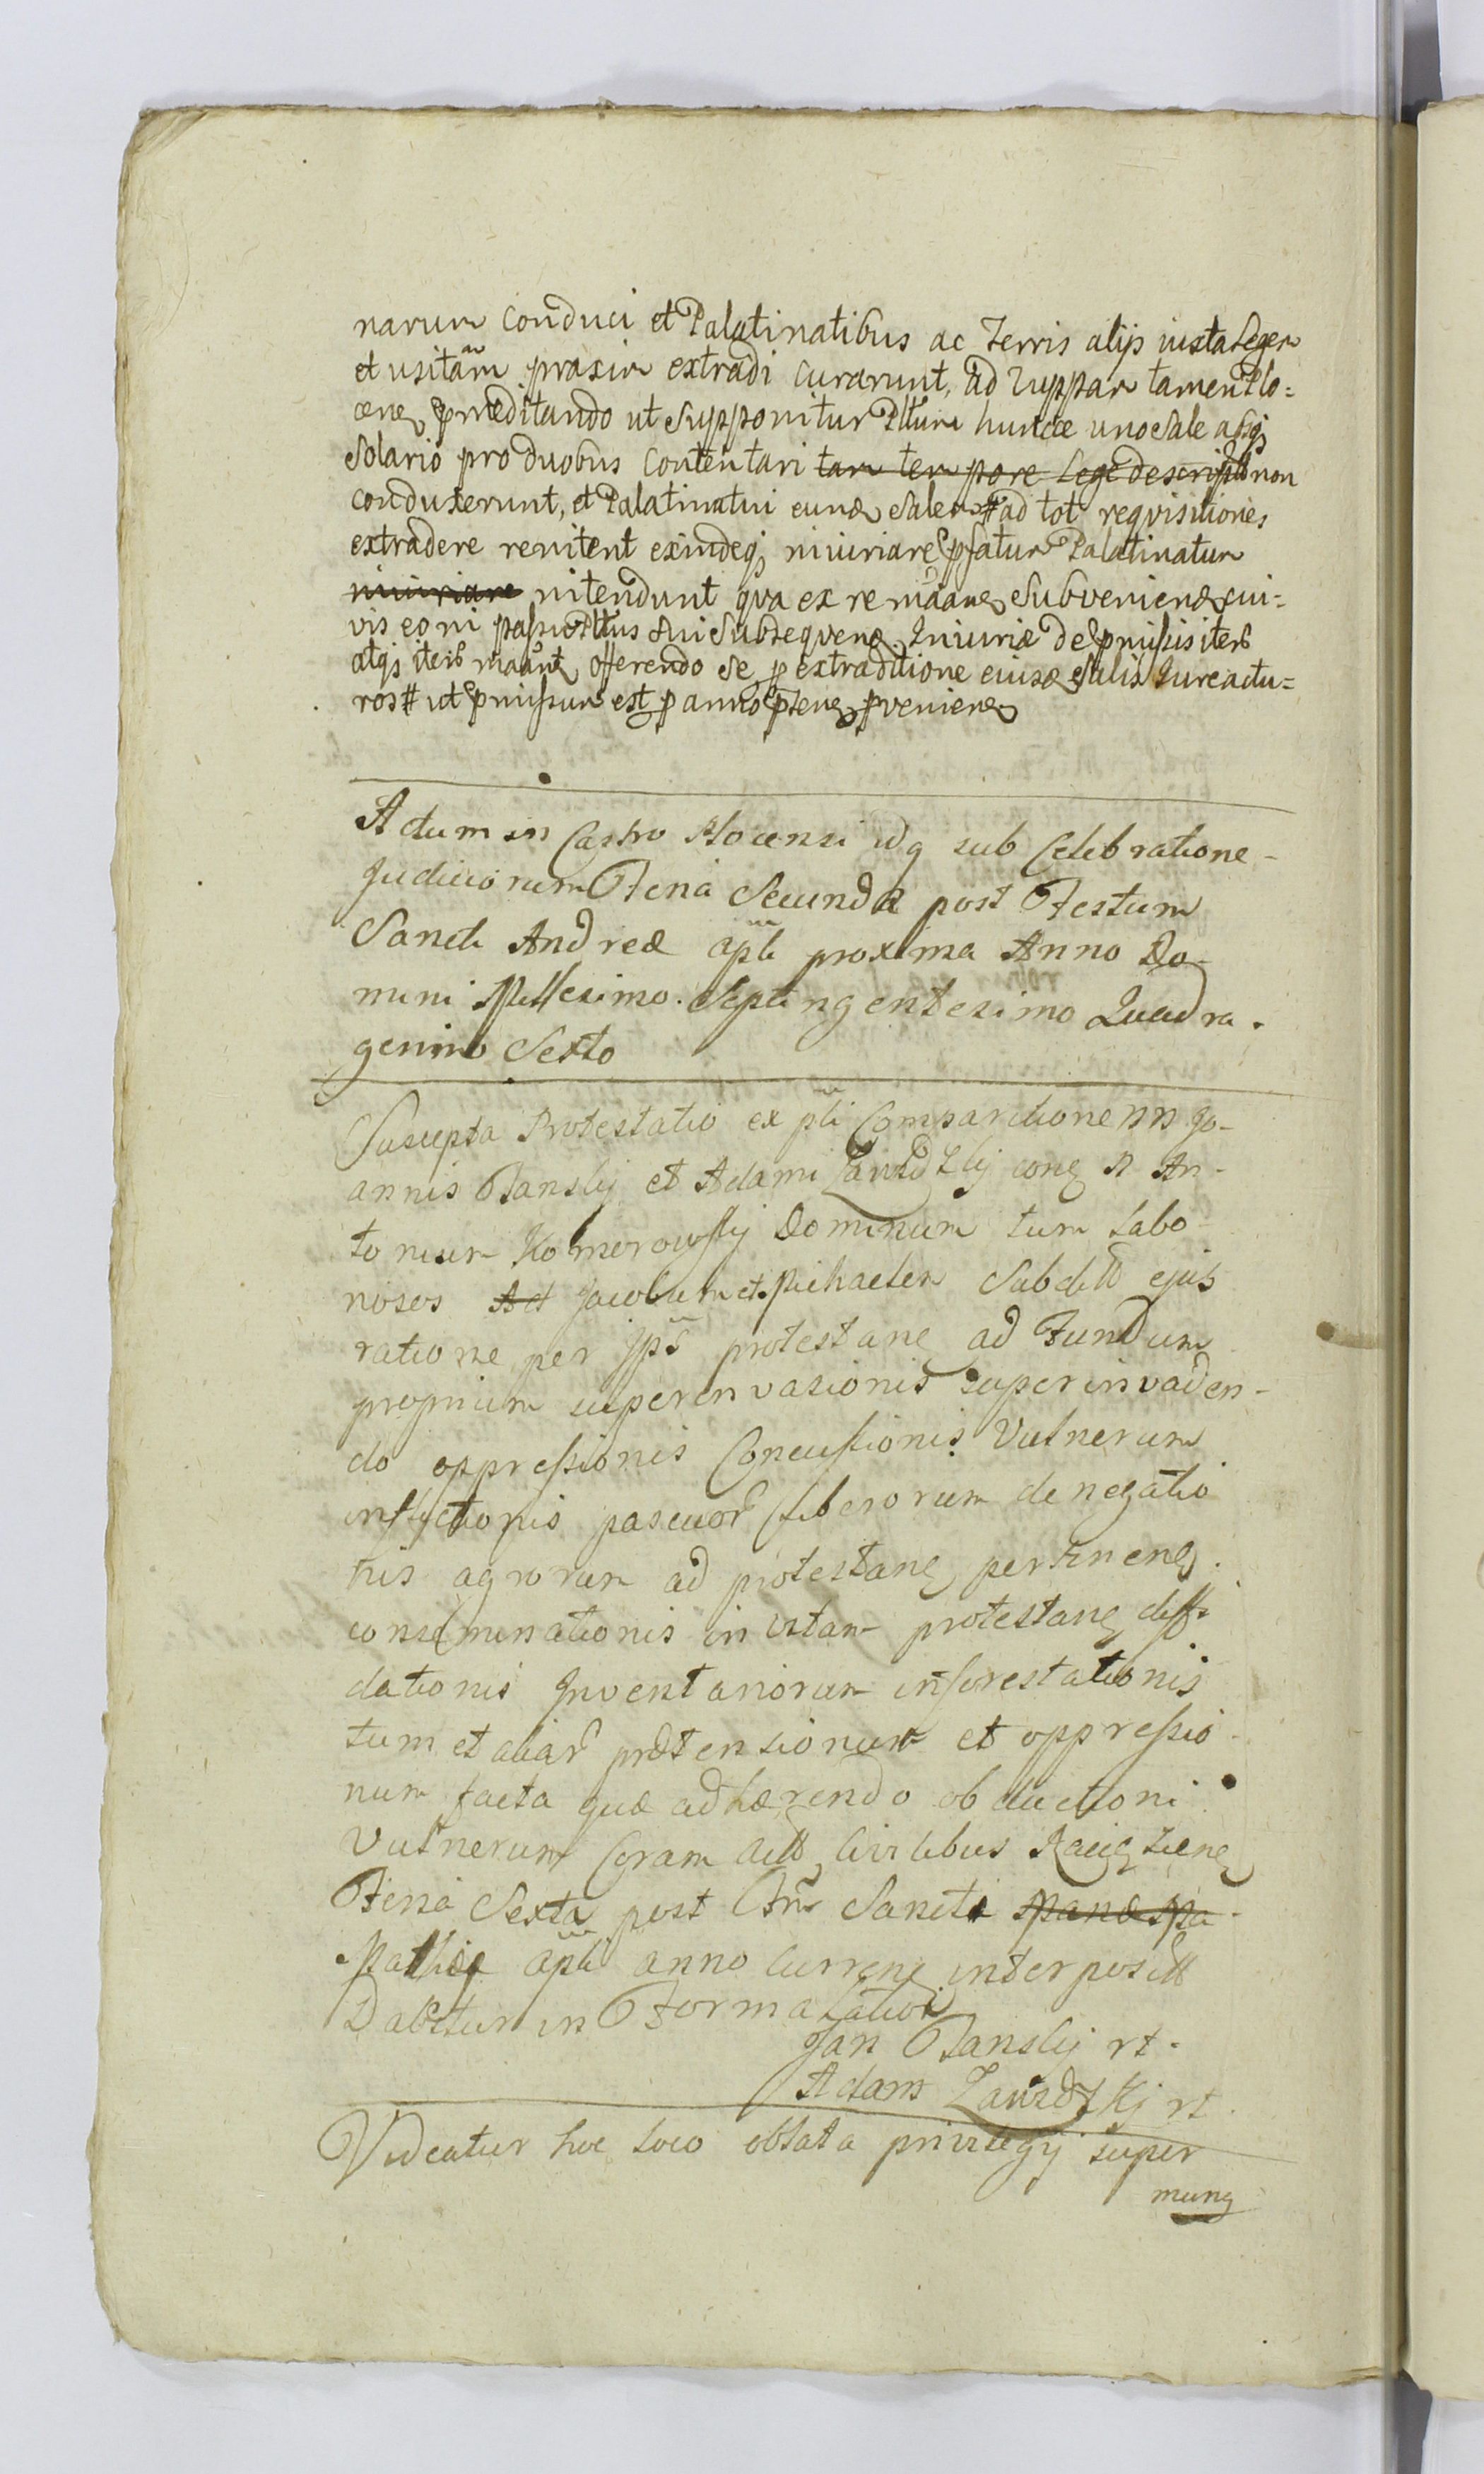 narum conduci et Palatinatibus ac Terris alijs iuxta Legem
et usitam̃ praxim extradi curarunt, ad Zuppam tamen Plo=
cen̄ præmeditando ut supponitur Plltum huncce uno Sale absq̨
Solario pro duobus contentari tam tempore Lege descripto non
conduxerunt, et Palatinatui eund Salem # ad tot reqvisitiones
extradere renitent exindeq̨ iniuriare pfatum Palatinatum
iniuriare nitendunt qva ex re maan̄ Subvenien̄ cui-
vis eoni passu Plltus Sui Subseqven̄ Iniuriæ de pmissis iterb
atq̨ iterb maãnt offerendo se p extraditione eiusd Salis Jure actu=
ros # ut pmissum est p anno pten̄ pvenien̄
Actum in Castro Plocensi idq sub Celebratione-
Judiciorum Feria Secunda post Festum
Sancti Andreæ apli proxima Anno Do-
mini Millesimo Septingentesimo Quadra-
gesimo Sexto
Suscepta Protestatio ex pti Comparitione NN Jo-
annis Banskij et Adami Zawidzkij con̄ N An-
tonium Komorowskij Dominum tum Labo-
riosos Ad Jacobum et Michaelem Subditt ejus
ratione per ips̃ protestan̄ ad Fundum
proprium superinvasionis superinvaden-
do oppressionis Concussionis Vulnerum
inflictionis pascuor̃ liberorum denegatio
nis agrorum ad protestan̄ pertinen̄
conseminationis in vitam protestan̄ diffi
dationis Inventariorum inforestationis
tum et aliar̃ prætensionum et oppressio-
num facta quæ adhærendo obductioni
Vulnerum Coram Actt Civilibus Raciąziene
Feria Sexta post Ftm̃ Sancti Mandpa-
Mathiæ apli anno curren̄ interposit
Dabitur in Forma Latiori
Jan Banskij rt.
Adam Zawidzkij rt.
Videatur hoc loco oblata privilegij super
mung